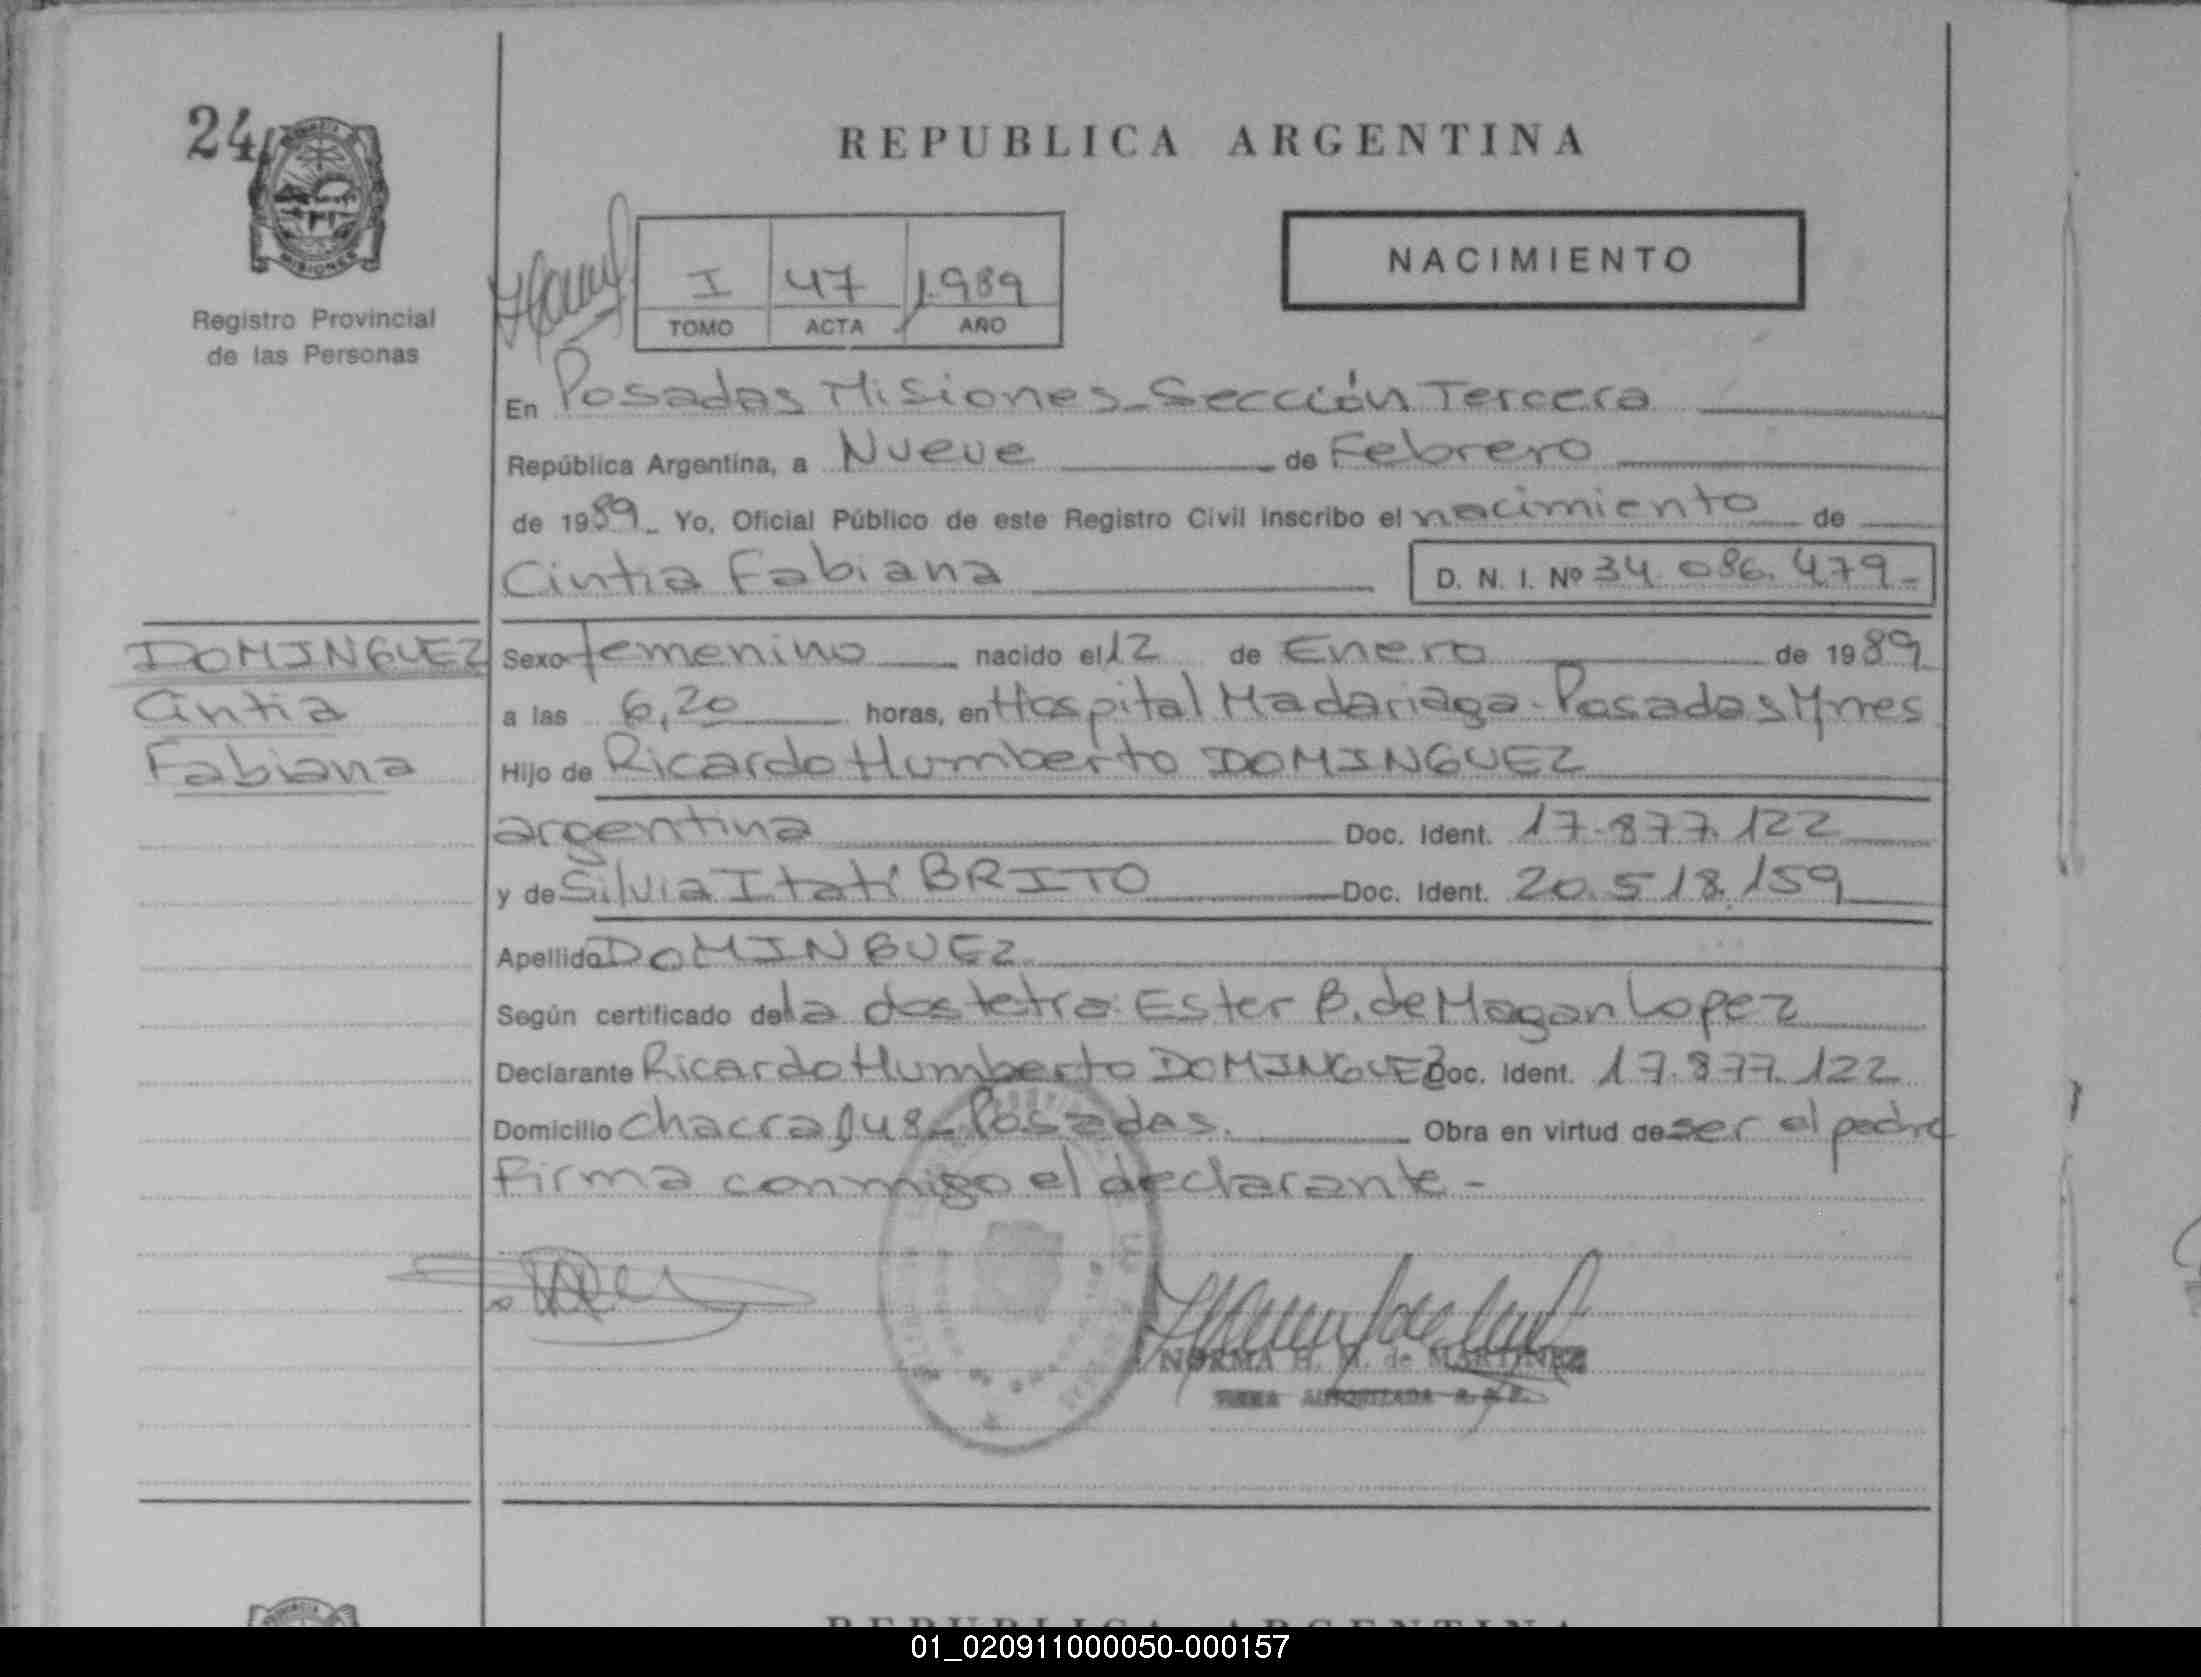 24
REPUBLICA ARGENTINA
MISIONES
Registro Provincial
de las Personas
I 47 1989
TOMO ACTA AÑO
NACIMIENTO
En Posadas Misiones - Sección Tercera
República Argentina, a Nueve de Febrero
de 1989 - Yo, Oficial Público de este Registro Civil inscribo el nacimiento de
Cintia Fabiana D. N. I. Nº 34.086.479 -
DOMINGUEZ
Cintia
Fabiana
Sexo femenino nacido el 12 de Enero de 1989
a las 6,20 horas, en Hospital Madariaga - Posadas Mnes
Hijo de Ricardo Humberto DOMINGUEZ
argentina Doc. Ident. 17.877.122
y de Silvia Itatí BRITO Doc. Ident. 20.518.159
Apellido DOMINGUEZ
Según certificado de la Ester B. de Magan Lopez
Declarante Ricardo Humberto DOMINGUEZ Doc. Ident. 17.877.122
Domicilio chacra Posadas. Obra en virtud de ser el padre
Firma conmigo el declarante -
NORMA H. de MARTINEZ
FIRMA AUTORIZADA
REPUBLICA ARGENTINA
01_020911000050-000157